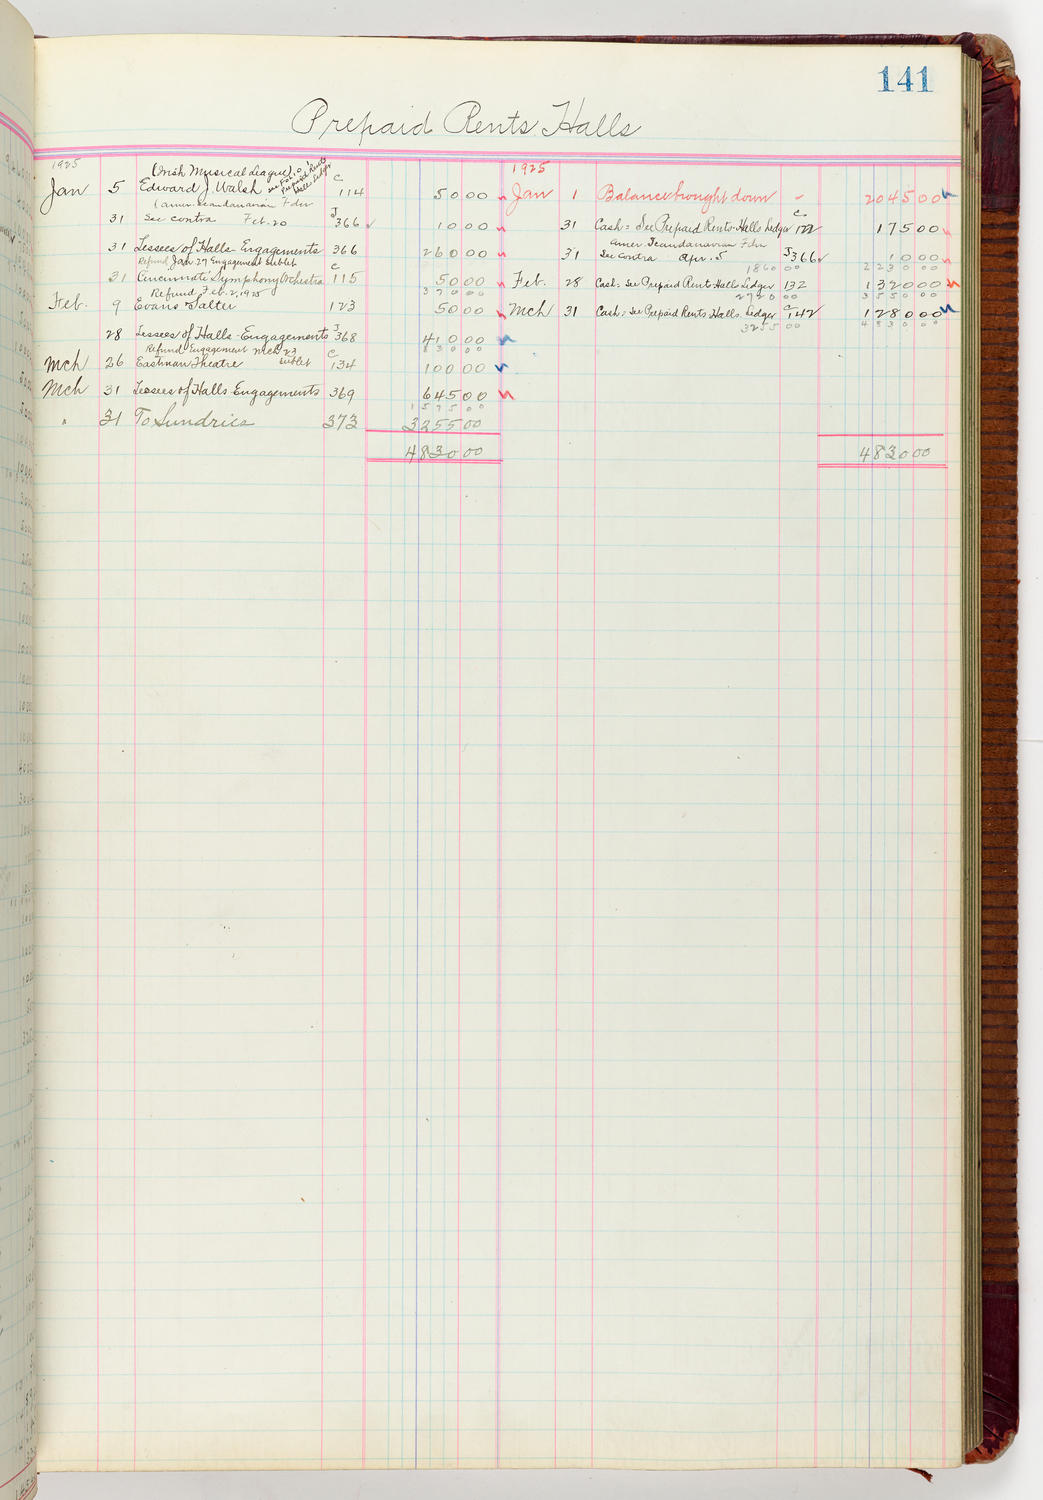 141
Prepaid Rents Halls
1925
(Irish Musical League)
Jan 5 Edward J. Walsh see Folio 1 Prepaid Rents Halls Ledger C 114 50 00
(Amer. Scandanavian Fdn
31 See contra Feb. 20 J 366 10 00
31 Lessees of Halls - Engagements 366 260 00
Refund Jan 27 Engagement Sublet
31 Cincinnati Symphony Orchestra C 115 50 00
Refund, Feb. 2, 1925 370 00
Feb. 9 Evans & Salter 123 50 00
28 Lessees of Halls - Engagements J 368 410 00
Refund, Engagement Mch 23 sublet 830 00
Mch 26 Eastman Theatre C 134 100 00
Mch 31 Lessees of Halls Engagements 369 645 00
1575 00
" 31 To Sundries 373 3255 00
4830 00
1925
Jan 1 Balance brought down - 2045 00
31 Cash: See Prepaid Rents-Halls Ledger C 122 175 00
Amer. Scandanavian Fdn
31 See contra Apr. 5 J 366 10 00
1860 00 2230 00
Feb. 28 Cash: See Prepaid Rent Halls Ledger 132 1320 00
2720 00 3550 00
Mch 31 Cash: See Prepaid Rents Halls. Ledger C 142 1280 00
3255 00 4830 00
4830 00